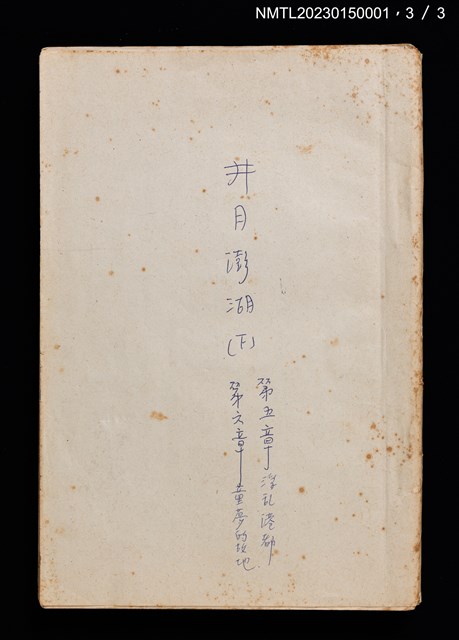 NMTL20230150001，3 / 3
井月澎湖(下)
第五章－浮乱港都
第六章－童夢的故地